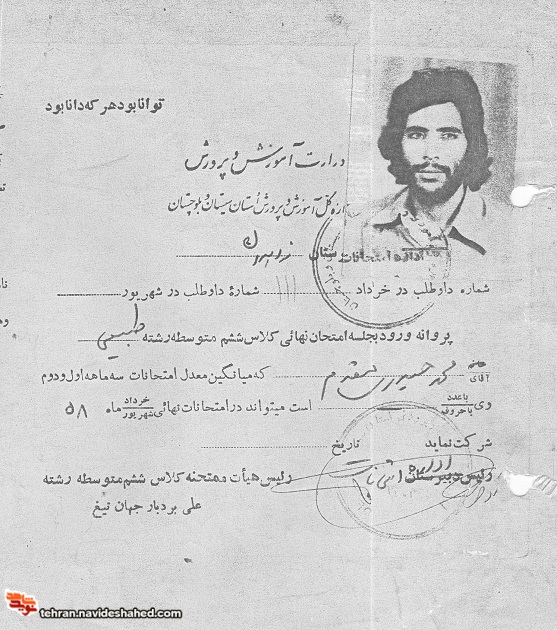 توانا بود هر که دانا بود
وزارت آموزش و پرورش
اداره کل آموزش و پرورش استان سیستان و بلوچستان
اداره امتحانات ستان
شماره داوطلب در خرداد ۱۱۱ شمارهٔ داوطلب در شهریور
پروانه ورود بجلسه امتحان نهائی کلاس ششم متوسطه رشته طبیعی
خانم
آقای محمد حیدری مقدم که میانگین معدل امتحانات سه ماهه اول و دوم
وی باعدد
باحروف است میتواند در امتحانات نهائی خرداد
شهریور ماه ۵۸
شرکت نماید تاریخ
رئیس دبیرستان رئیس هیأت ممتحنه کلاس ششم متوسطه رشته
علی بردبار جهان تیغ
نوید شاهد
tehran.navideshahed.com